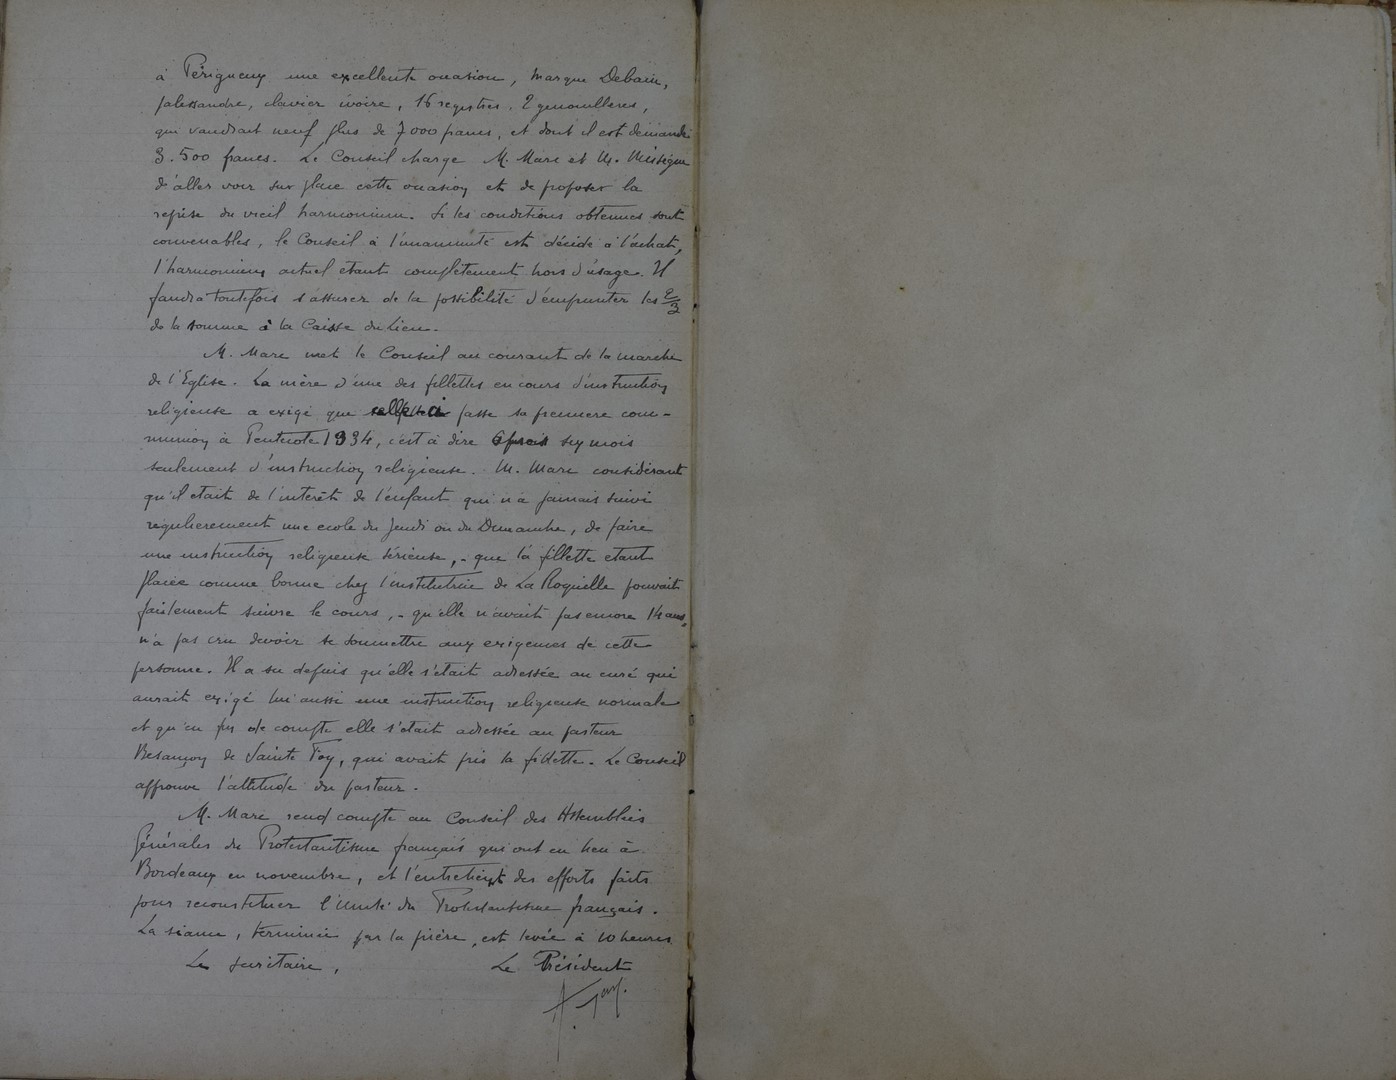 à Périgueux une excellente occasion, marque Debain,
palissandre, clavier ivoire, 16 registres, 2 genouillères,
qui vaudrait neuf plus de 7000 francs, et dont il est demandé
3.500 francs. Le Conseil charge M. Marc et M.
d'aller voir sur place cette occasion et de proposer la
reprise du vieil harmonium. Si les conditions obtenues sont
convenables, le Conseil à l'unanimité est décidé à l'achat,
l'harmonium actuel étant complètement hors d'usage. Il
faudra toutefois s'assurer de la possibilité d'emprunter les 2/3
de la somme à la Caisse du Lien.
M. Marc met le Conseil au courant de la marche
de l'Eglise. La mère d'une des fillettes en cours d'instruction
religieuse a exigé que celle-ci fasse sa première com-
munion à Pentecôte 1934, c'est à dire après six mois
seulement d'instruction religieuse. M. Marc considérant
qu'il était de l'intérêt de l'enfant qui n'a jamais suivi
régulièrement une école du Jeudi ou du Dimanche, de faire
une instruction religieuse sérieuse, - que la fillette étant
placée comme bonne chez l'institutrice de La Roquille pouvait
facilement suivre le cours, - qu'elle n'avait pas encore 14 ans,
n'a pas cru devoir se soumettre aux exigences de cette
personne. Il a su depuis qu'elle s'était adressée au curé qui
aurait exigé lui aussi une instruction religieuse normale
et qu'en fin de compte elle s'était adressée au pasteur
Besançon de Sainte Foy, qui avait pris la fillette. Le Conseil
approuve l'attitude du pasteur.
M. Marc rend compte au Conseil des Assemblées
Générales du Protestantisme français qui ont eu lieu à
Bordeaux en novembre, et l'entretient des efforts faits
pour reconstituer l'Unité du Protestantisme français.
La séance, terminée par la prière, est levée à 10 heures.
Le secrétaire, Le Président